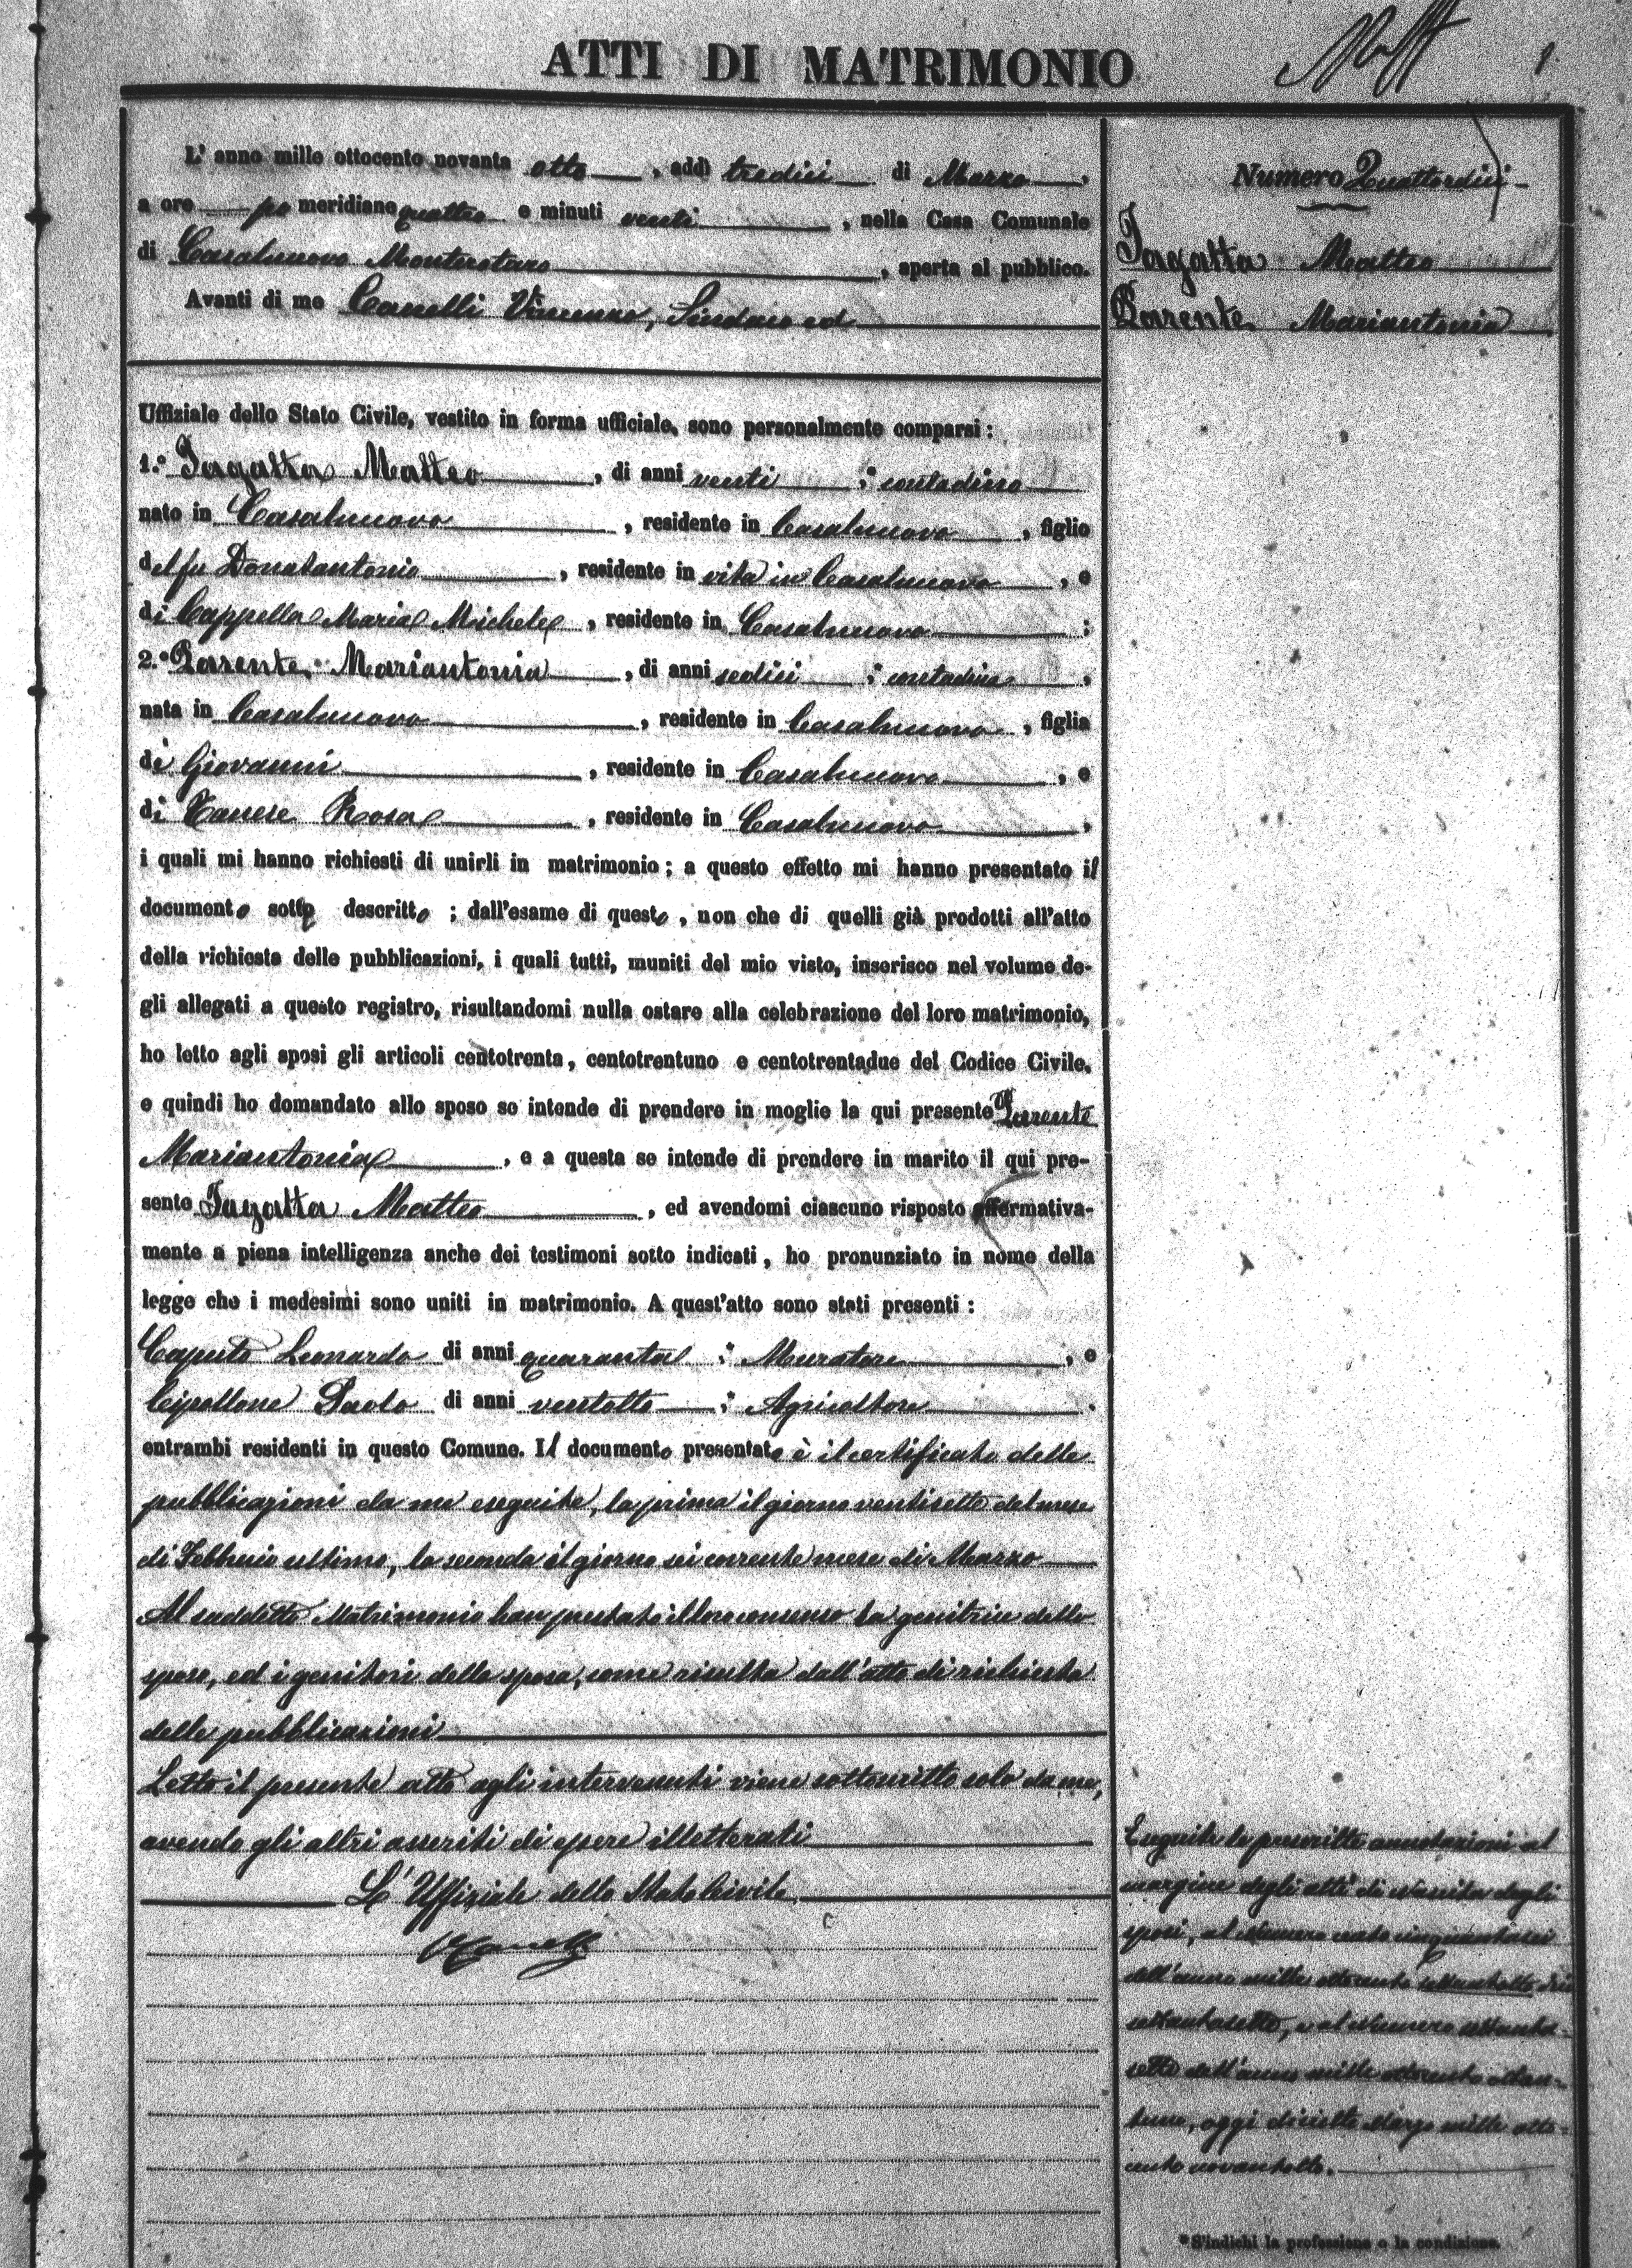 ATTI DI MATRIMONIO
L' anno mille ottocento novanta otto, addì tredici di Marzo,
a ore po meridiane quattro e minuti venti, nella Casa Comunale
di Casalnuovo Monterotaro, aperta al pubblico.
Avanti di me Canelli Vincenzo, Sindaco ed
Uffiziale dello Stato Civile, vestito in forma ufficiale, sono personalmente comparsi:
1.° Jagatta Matteo, di anni venti; contadino
nato in Casalnuovo, residente in Casalnuovo, figlio
del fu Donatantonio, residente in vita in Casalnuovo, e
di Cappella Maria Michele, residente in Casalnuovo;
2.° Parente Mariantonia, di anni sedici; contadina,
nata in Casalnuovo, residente in Casalnuovo, figlia
di Giovanni, residente in Casalnuovo, e
di Rosa, residente in Casalnuovo,
i quali mi hanno richiesti di unirli in matrimonio; a questo effetto mi hanno presentato il
documento sotto descritto; dall'esame di questo, non che di quelli già prodotti all'atto
della richiesta delle pubblicazioni, i quali tutti, muniti del mio visto, inserisco nel volume de-
gli allegati a questo registro, risultandomi nulla ostare alla celebrazione del loro matrimonio,
ho letto agli sposi gli articoli centotrenta, centotrentuno e centotrentadue del Codice Civile,
e quindi ho domandato allo sposo se intende di prendere in moglie la qui presente Parente
Mariantonia, e a questa se intende di prendere in marito il qui pre-
sente Jagatta Matteo, ed avendomi ciascuno risposto affermativa-
mente a piena intelligenza anche dei testimoni sotto indicati, ho pronunziato in nome della
legge che i medesimi sono uniti in matrimonio. A quest'atto sono stati presenti:
Caputo Leonardo di anni quaranta; Muratore, e
Cipollone Paolo di anni ventotto; Agricoltore.
entrambi residenti in questo Comune. Il documento presentato è il certificato delle
pubblicazioni da me eseguite, la prima il giorno ventisette del mese
di Febbraio ultimo, la seconda il giorno sei corrente mese di Marzo
Al suddetto Matrimonio han prestato il loro consenso la genitrice dello
sposo, ed i genitori della sposa, come risulta dall'atto di richiesta
delle pubblicazioni
Letto il presente atto agli intervenuti viene sottoscritto solo da me,
avendo gli altri asseriti di essere illetterati
L'Uffiziale dello Stato Civile
VCanelli
Numero Quattordici
Jagatta Matteo
Parente Mariantonia
Eseguite le prescritte annotazioni al
margine degli atti di nascita degli
sposi, al Numero cento cinquantasei
dell'anno mille ottocento settantotto
settantasette, e al Numero settanta-
sette dell'anno mille ottocento ottan-
tuno, oggi diciotto Marzo mille otto-
cento novantotto.
*S'indichi la professione o la condizione.